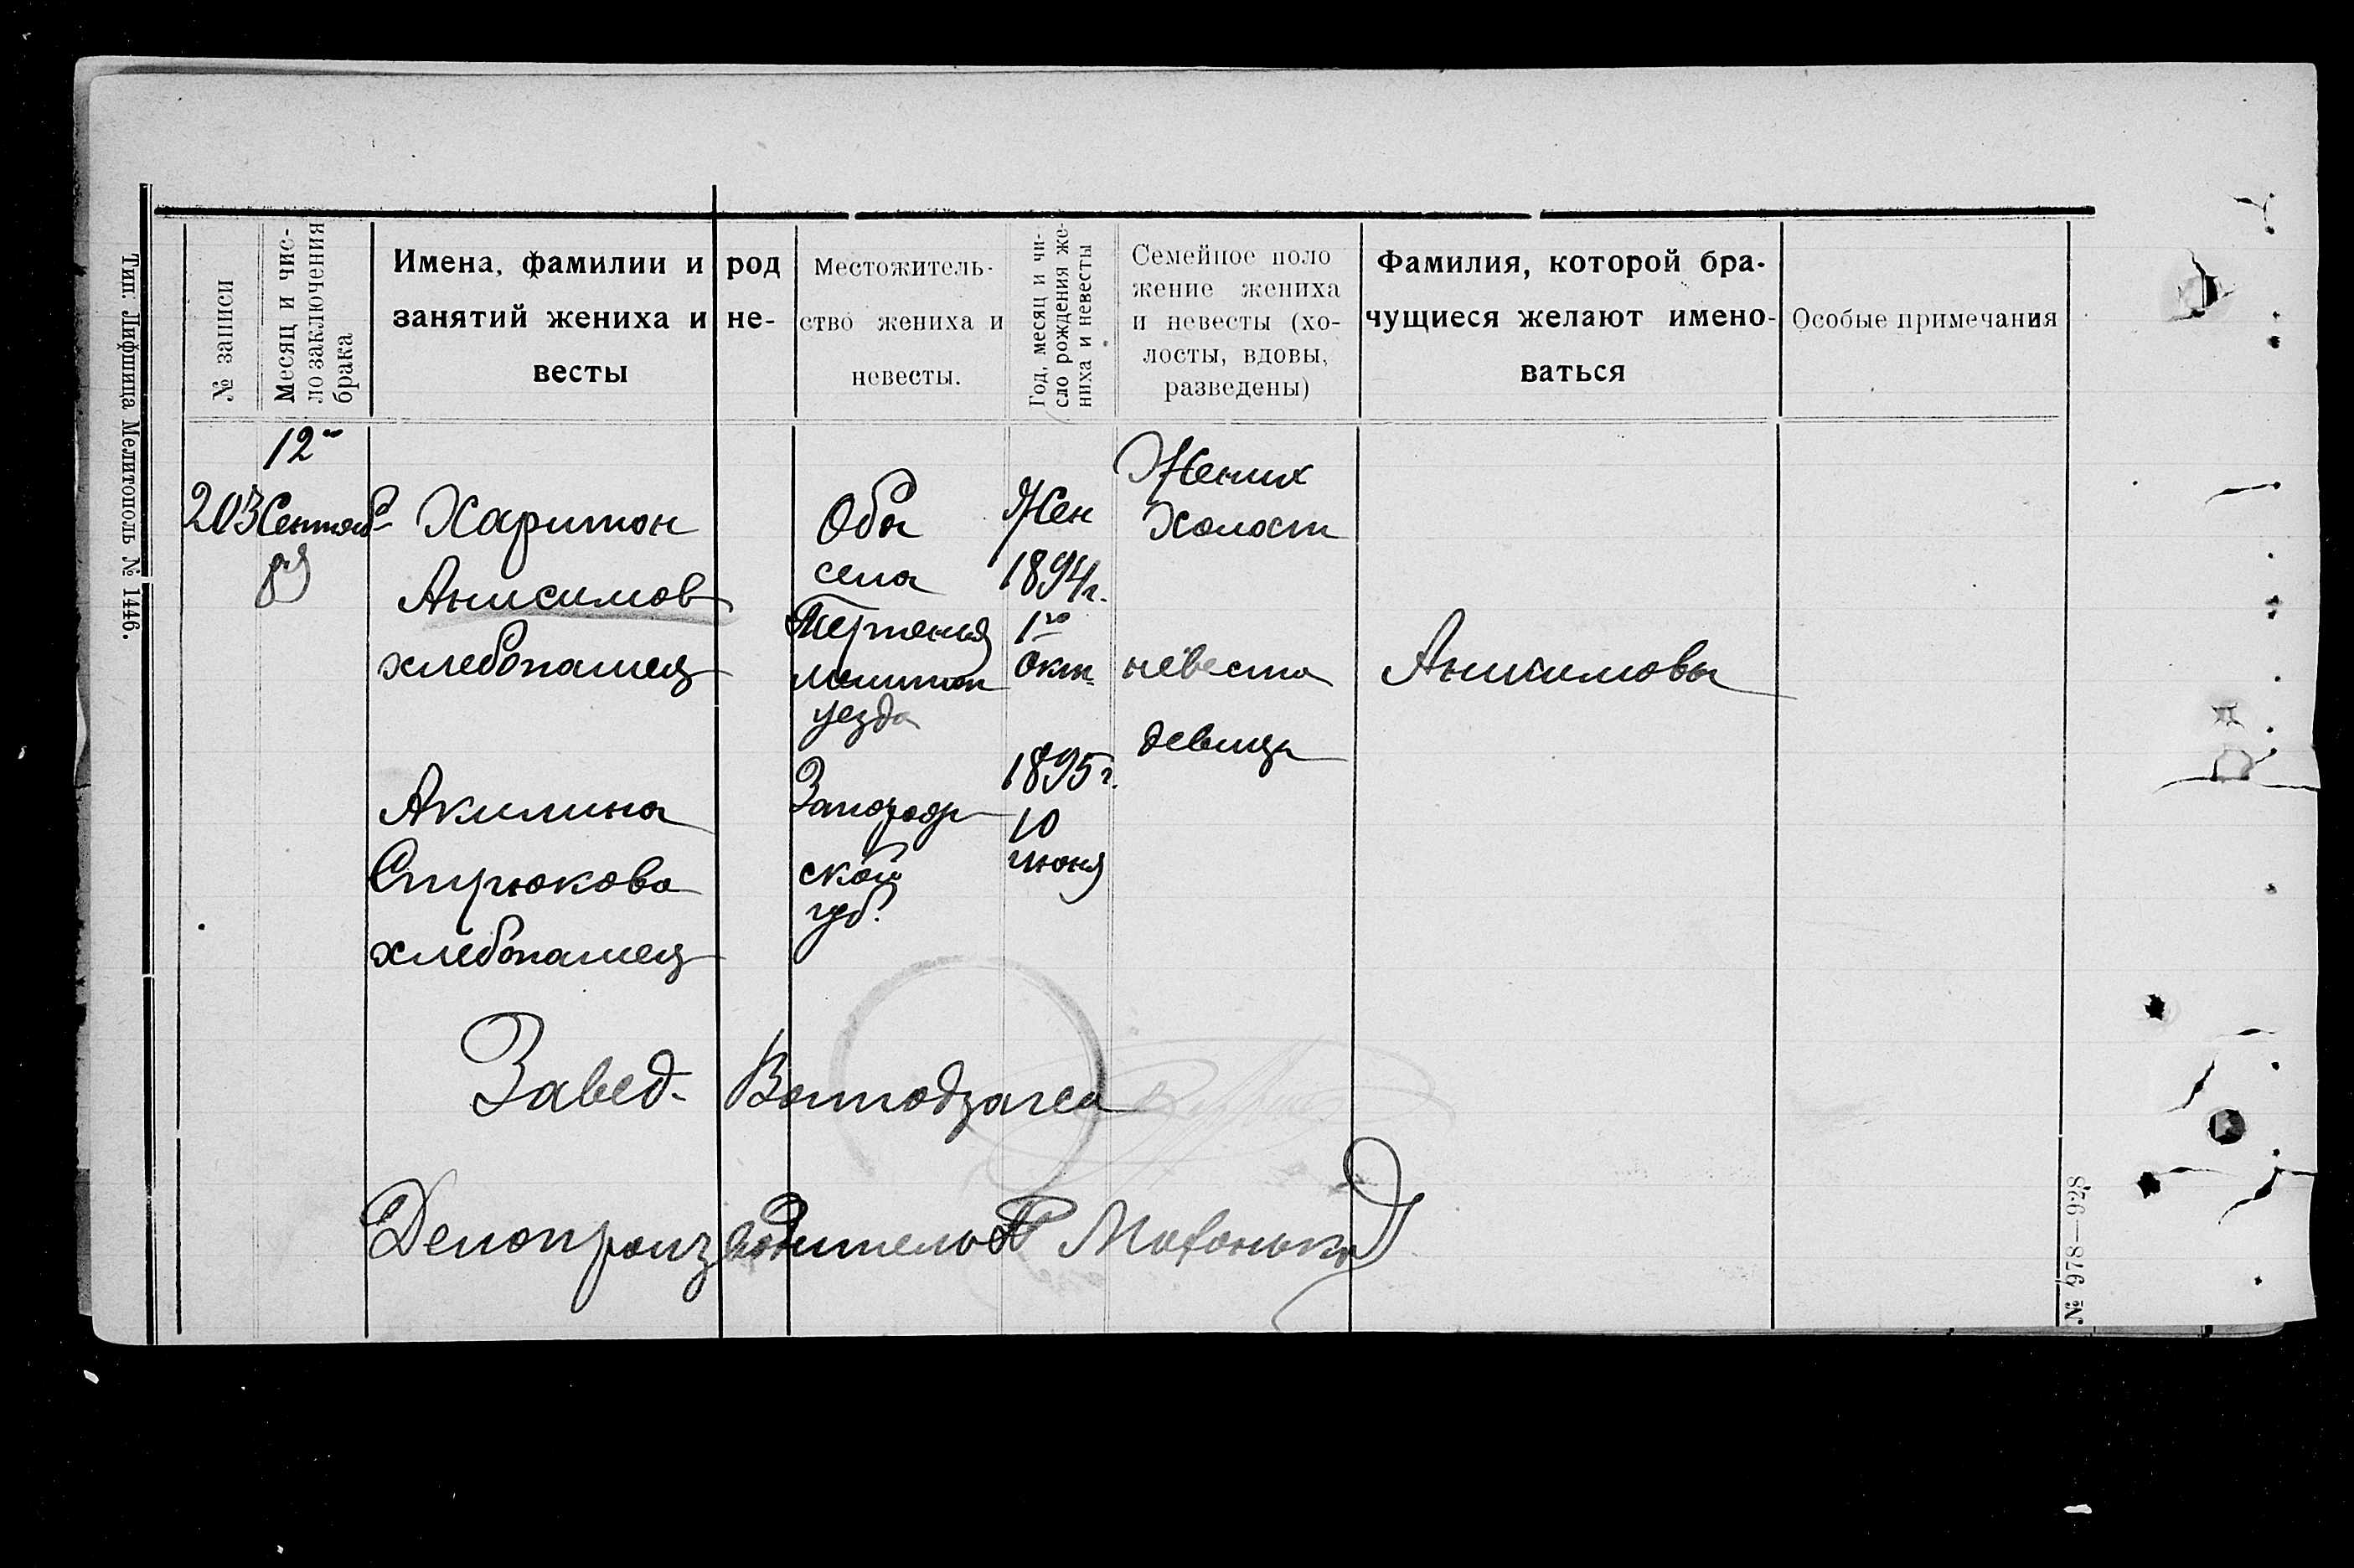 № записи
Месяц и чис-
ло заключения
брака
Имена, фамилии и род
занятий жениха и не-
весты
Местожитель-
ство жениха и
невесты.
Год, месяц и чи-
сло рождения же-
ниха и невесты
Семейное поло
жение жениха
и невесты (хо-
лосты, вдовы,
разведены)
Фамилия, которой бра-
чущиеся желают имено-
ваться
Особые примечания
203
12го
Сентяб
ря
Харитон
Анисимов
хлебопашец
Акилина
Спрюкова
хлебопашец
Оба
села
Терпенья
мелитоп
уезда
Запорож
ской
губ.
Жен
1894г.
1го
окт.
1895г.
10
июня
Жених
Холост
невеста
девица
Анисимовы
Завед. Волподзагса
Делопроизводитель
Тип. Лифшица Мелитополь № 1446.
№ 978—928